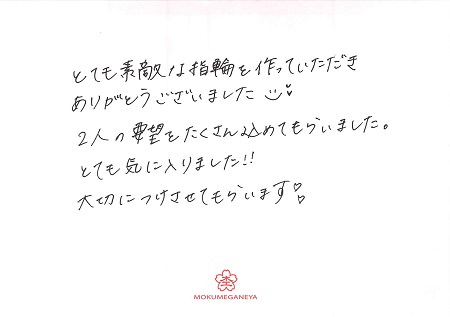 とても素敵な指輪を作っていただき
ありがとうございました
2人の要望をたくさん込めてもらいました。
とても気に入りました!!
大切につけさせてもらいます
MOKUMEGANEYA